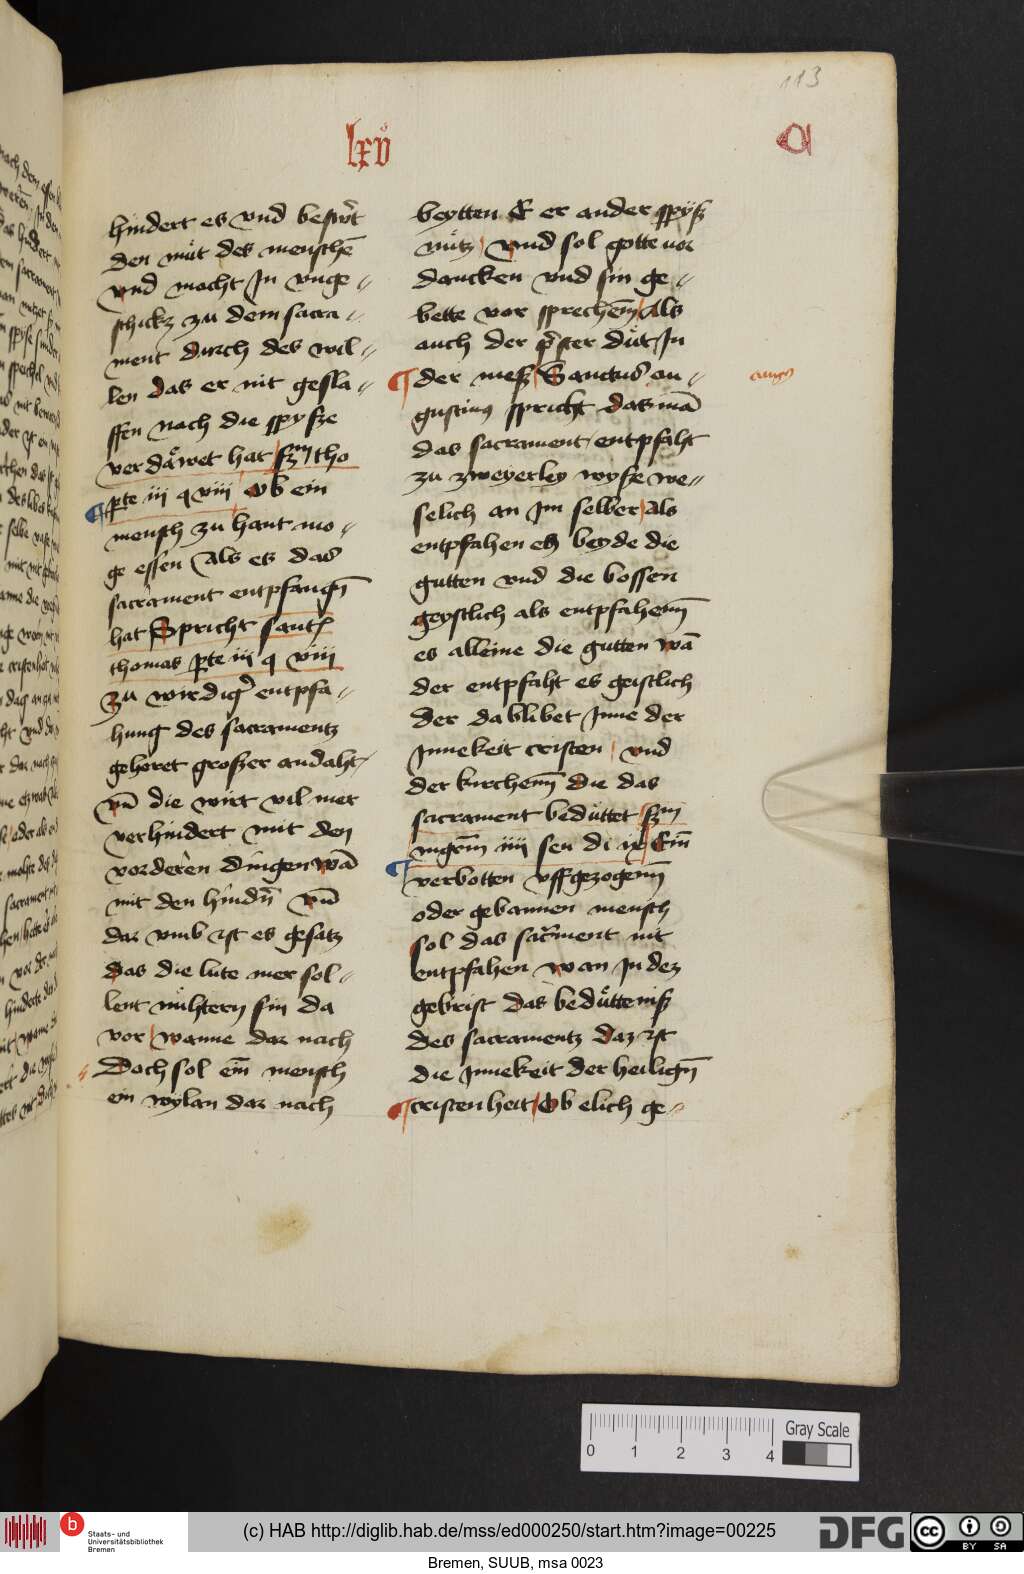 113
lxv
hindert es vnd beswͦrt
den muͤt des menschē
vnd macht In vnge⸗
schickt zu dem sacra⸗
ment durch des wil⸗
len das er nit gesla⸗
ffen nach die spysze
verdaͤwet hat tho
pte iij q viij Ob ein
mensch zu hant mo⸗
ge essen Als es das
sacrament entpfangn̄
hat Spricht sant
thomas pte iij q viij
zu wirdigͬ entpfa⸗
hung des sacramentz
gehoret groszer andaht
vn̄ die wirt vil mer
verhindert mit den
vorderen dingen wā
mit den hindn̄ vn̄
dar vmb ist es gesatz
das die lute mer sol⸗
lent nuͤhtern sin da
vor wanne dar nach
Doch sol ein mensch
ein wylan dar nach
beytten E er ander spysz
nuͤtz vnd sol gotte vor
dancken vnd sin ge⸗
bette vor sprechen̄ Als
auch der pͥster duͤt In
der mesz Sanctus au⸗
gustinus spricht das mā
das sacrament entpfaht
zu zweyerley wyse we⸗
selich an Im selber Als
entpfahen es beyde die
gutten vnd die bossen
geystlich als entpfahenn̄
es alleine die gutten wā
der entpfaht es geistlich
der da blibet Inne der
Innekeit cristen vnd
der kirchenn̄ die das
sacrament beduͤttet
iiij sen di ix Ein̄
verbotten vffgezogenn̄
oder gebannen mensch
sol das sacͬment nit
entpfahen wan In dez
gebrist das beduͤttenisz
des sacramentz daz ist
die Innekeit der heilign̄
cristenheit Ob elich ge⸗
0 1 2 3 4
Gray Scale
b
Staats- und
Universitätsbibliothek
Bremen
(c) HAB http://diglib.hab.de/mss/ed000250/start.htm?image=00225
DFG
cc BY SA
Bremen, SUUB, msa 0023